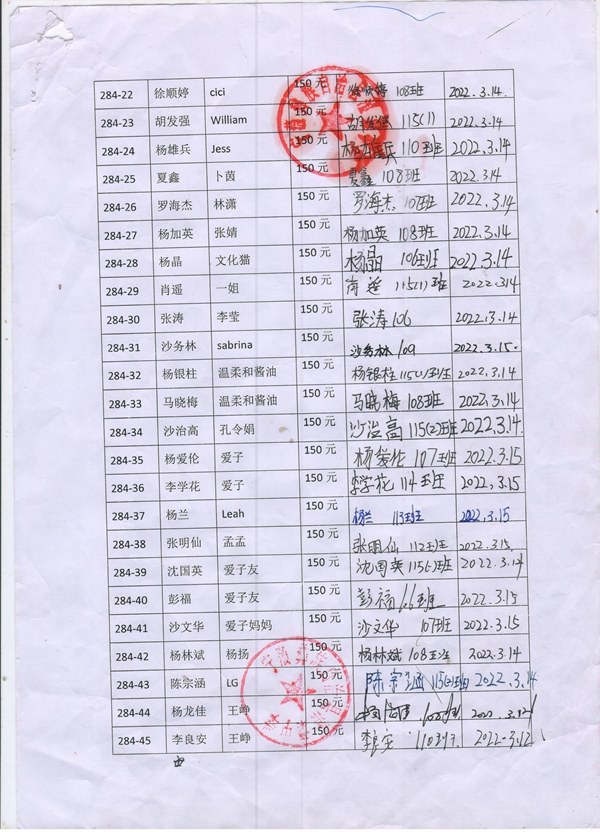 284-22 徐顺婷 cici 150 元 徐顺婷 108班 2022.3.14.
284-23 胡发强 William 150 元 胡发强 115(1) 2022.3.14
284-24 杨雄兵 Jess 150 元 杨雄兵 110班 2022.3.14
284-25 夏鑫 卜茵 150 元 夏鑫 108班 2022.3.14
284-26 罗海杰 林潇 150 元 罗海杰 108班 2022.3.14
284-27 杨加英 张婧 150 元 杨加英 108班 2022.3.14
284-28 杨晶 文化猫 150 元 杨晶 106班 2022.3.14
284-29 肖遥 一姐 150 元 肖遥 115(1)班 2022.3.14
284-30 张涛 李莹 150 元 张涛 106 2022.3.14
284-31 沙务林 sabrina 150 元 沙务林 109 2022.3.15.
284-32 杨银柱 温柔和酱油 150 元 杨银柱 115(1)班 2022.3.14
284-33 马晓梅 温柔和酱油 150 元 马晓梅 108班 2022.3.14
284-34 沙治高 孔令娟 150 元 沙治高 115(2)班 2022.3.14.
284-35 杨爱伦 爱子 150 元 杨爱伦 107班 2022.3.15
284-36 李学花 爱子 150 元 李学花 114班 2022.3.15
284-37 杨兰 Leah 150 元 杨兰 113班 2022.3.15
284-38 张明仙 孟孟 150 元 张明仙 112班 2022.3.15.
284-39 沈国英 爱子友 150 元 沈国英 115(1)班 2022.3.14
284-40 彭福 爱子友 150 元 彭福 班 2022.3.15
284-41 沙文华 爱子妈妈 150 元 沙文华 107班 2022.3.15
284-42 杨林斌 杨扬 150 元 杨林斌 108班 2022.3.14
284-43 陈宗涵 LG 150 元 陈宗涵 115(2)班 2022.3.14
284-44 杨龙佳 王峥 150 元 2022.3.12
284-45 李良安 王峥 150 元 李良安 110班 2022.3.12